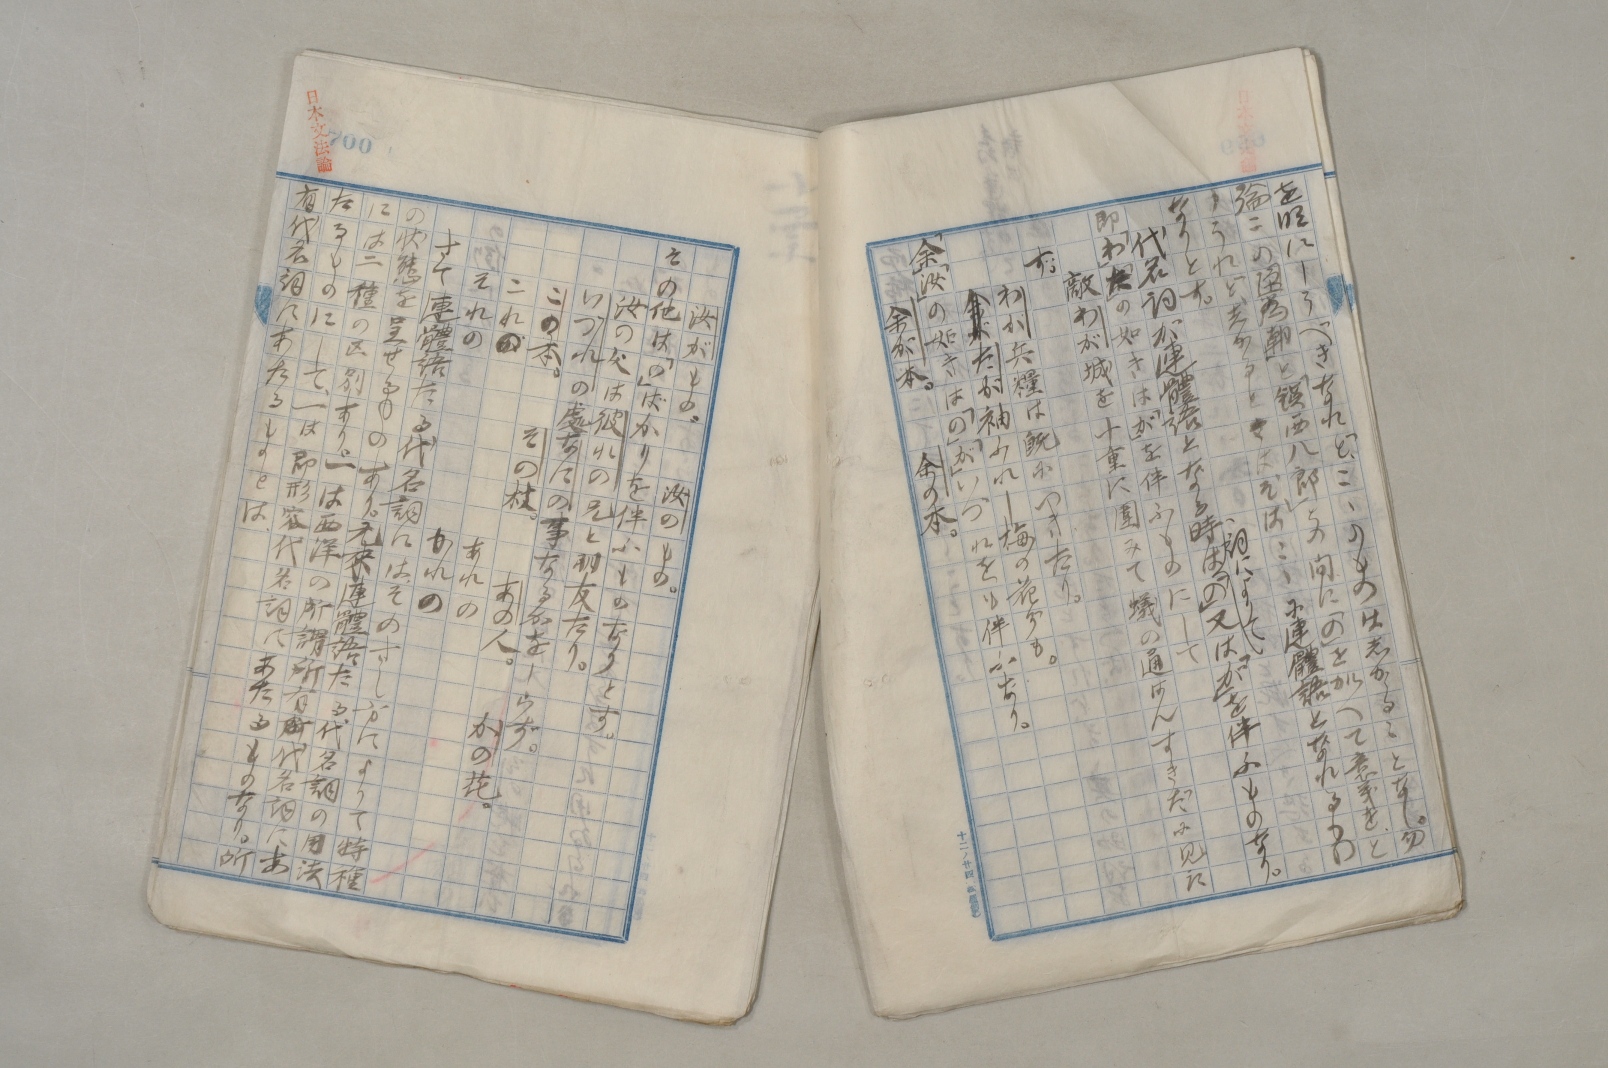 を明にしうべきなれど、こゝのもの出来かゝることなし。勿
論この「源為朝」と「鎮西八郎」との間に「の」を加へて意義をと
りうれど、しかするときはそはこゝに連體語となれるもの
なりとす。
代名詞が連體語となる時は、詞によりて「の」又は「が」を伴ふものなり。
即「わ」の如きは「が」を伴ふものにして
敵わが城を十重に圍みて蟻の通はんすきだに見え
ず。
わが兵糧は既につきたり。
たが袖ふれし梅の花ぞも。
「余」「汝」の如きは「の」「が」いづれをも伴ふなり。
余が本。 余の本。
汝がもの。 汝のもの。
その他は「の」ばかりを伴ふものなりとす。
汝の父は彼れの兄と朋友たり。
いづれの處なにの事なるかを知らず。
この本。 その杖。 あの人。 かの花。
これの
それの あれの かれの
さて連體語たる代名詞には、そのさし方によりて特種
の状態を呈せるものあり。元来連體語たる代名詞の用法
には二種の区別あり。一は西洋の所謂所有代名詞にあ
たるものにして、一は即形容代名詞にあたるものなり。所
有代名詞にあたるものとは、
日本文法論
700
日本文法論
699